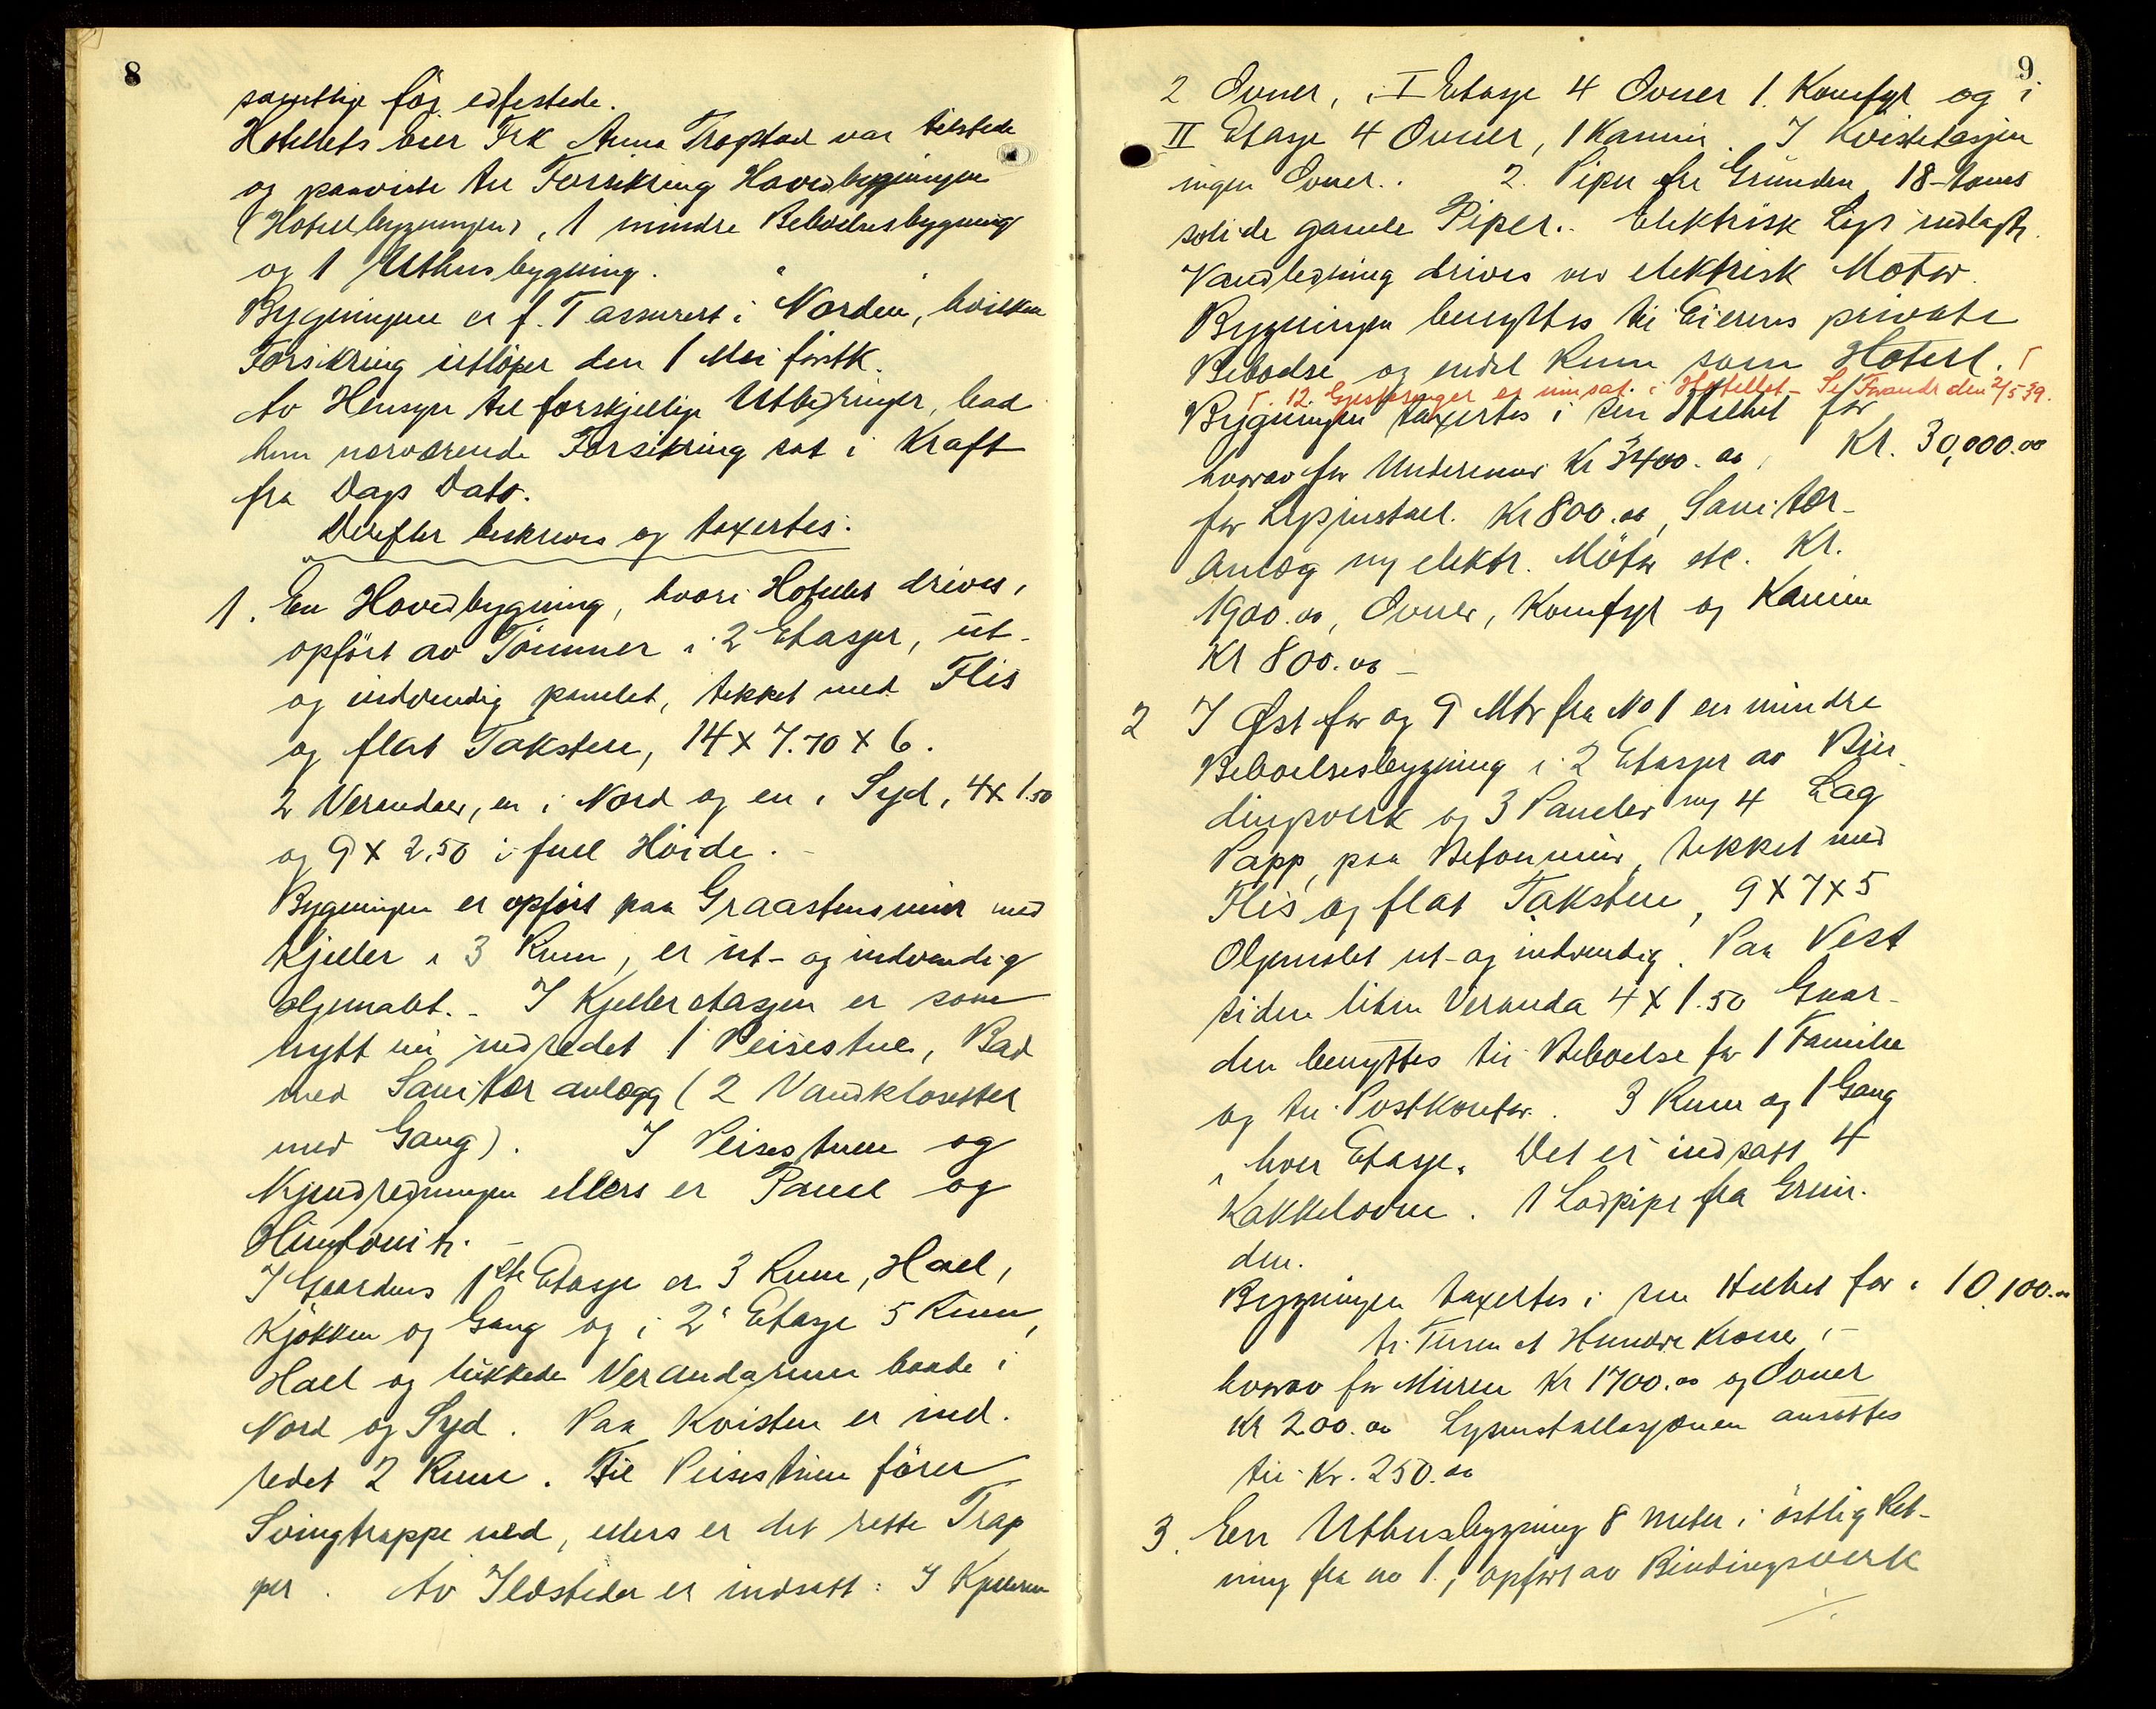 8
samtlige før edfestede.
Hotellets Eier Frk Anna Trogstad var tilstede
og paaviste til Forsikring Hovedbygningen
(Hotellbygningen), 1 mindre Beboelsesbygning
og 1 Uthusbygning.
Bygningene er f. T assurert i Norden, hvilken
Forsikring utløper den 1 Mai førstk.
Av Hensyn til forskjellige Utbedringer, bad
hun nærværende Forsikring sat i Kraft
fra Dags Dato.
Derefter beskreves og taxertes:
1. En Hovedbygning, hvori Hotellet drives,
opført av Tømmer i 2 Etasjer, ut-
og indvendig panelet, tekket med Flis
og flat Taksten, 14 x 7.70 x 6.
2 Verandaer, en i Nord og en i Syd, 4 x 1.50
og 9 x 2,50 i full Høide. -
Bygningen er opført paa Graastensmur med
Kjeller i 3 Rum, er ut- og indvendig
oljemalt. - I Kjelleretasjen er som
nytt nu indredet 1 Peisestue, Bad
med Sanitær anlegg (2 Vandklosetter
med Gang). I Peisestuen og
Nyindredningen ellers er Panel og
I Gaardens 1ste Etasje er 3 Rum, Hall,
Kjøkken og Gang og i 2' Etasje 5 Rum,
Hall og lukkede Verandarum baade i
Nord og Syd. Paa Kvisten er ind-
redet 2 Rum. Til Peisestuen fører
Svingtrappe ned, ellers er det rette Trap
per. Av Ildsteder er indsatt: I Kjelleren
9
2 Ovner, i I Etasje 4 Ovner 1 Komfyr og i
II Etasje 4 Ovner, 1 Kamin. I Kvistetasjen
ingen Ovner. 2 Piper fra Grunden, 18-toms
solide gamle Piper. Elektrisk Lys indlagt,
Vandledning drives ved elektrisk Motor.
Bygningen benyttes til Eierens private
Beboelse og endel Rum som Hotell. Γ
Γ. 12 Gjestesenger er innsat i Hotellet - Se Forandr den 2/5 39.
Bygningen taxertes i sin Helhet for
hvorav for Undermur Kr 3400.00, Kr. 30,000.00
for Lysinstall. Kr 800.00, Sanitær-
anlæg ny elektr. Motor etc. Kr.
1900.00, Ovner, Komfyr og Kamin
Kr 800.00 -
2 I Øst for og 9 Mtr fra No 1 en mindre
Beboelsesbygning i 2 Etasjer av Bin-
dingverk og 3 Paneler og 4 Lag
Papp, paa Betonmur, tekket med
Flis og flat Taksten, 9 x 7 x 5
Oljemalet ut- og indvendig. Paa Vest
siden liten Veranda 4 x 1.50 Gaar-
den benyttes til Beboelse for 1 Familie
og til Postkontor. 3 Rum og 1 Gang
i hver Etasje. Det er indsatt 4
Kakkelovne. 1 Lodpipe fra Grun-
den.
Bygningen taxertes i sin Helhet for 10.100.00
ti Tusen et Hundre Kroner, -
hvorav for Muren Kr 1700.00 og Ovner
Kr 200.00 Lysinstallasjonen ansættes
til Kr. 250.00
3. En Uthusbygning 8 meter i østlig Ret-
ning fra no 1., opført av Bindingsverk